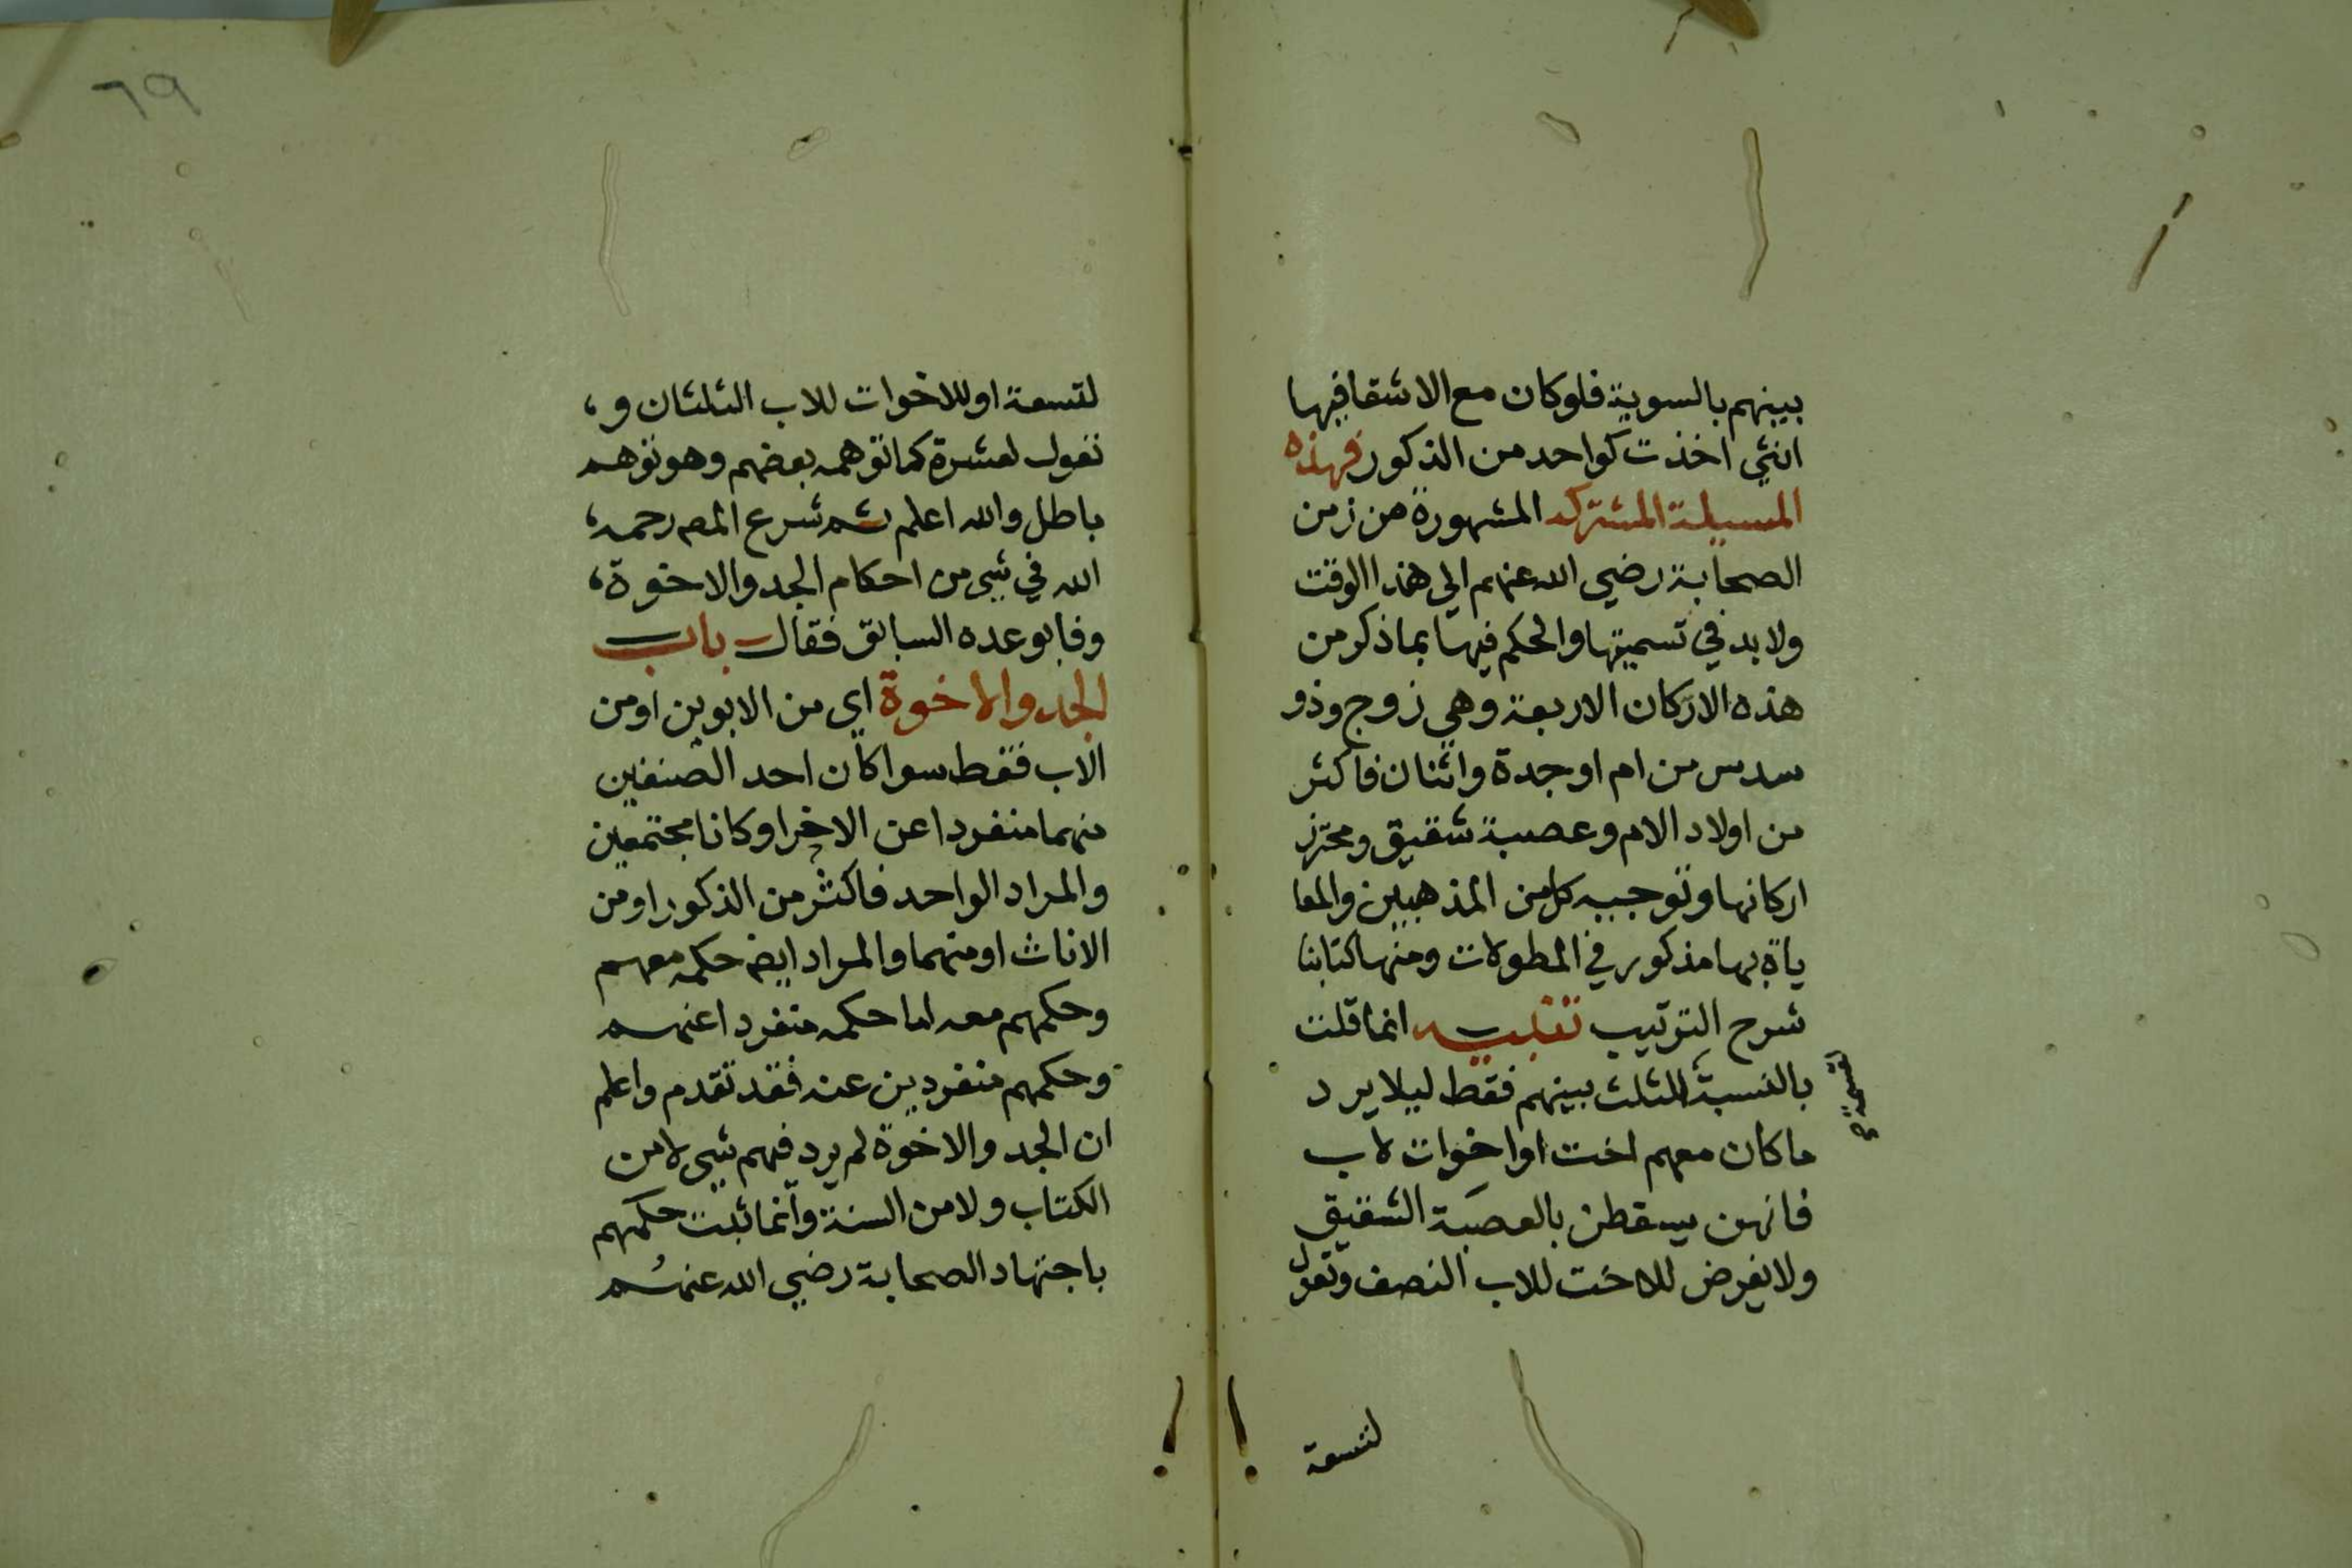 بينهم بالسوية فلو كان مع الاشقا فيها
انثي اخذت كواحد من الذكور فهذه
المسيلة المشتركه المشهورة من زمن
الصحابة رضي الله عنهم الي هذا الوقت
ولا بد في تسميتها والحكم فيها بما ذكر من
هذه الاركان الاربعة وهي زوج وذو
سدس من ام او جدة واثنان فاكثر
من اولاد الام وعصبة شقيق ومحترز
اركانها وتوجيه كل من المذهبين والمعا
ياة بها مذكور في المطولات ومنها كتابنا
شرح الترتيب تنبيه انما قلت
بالنسبة للثلث بينهم فقط ليلا يرد
ما كان معهم اخت او اخوات لاب
فانهن يسقطن بالعصبة الشقيق
ولا يفرض للاخت للاب النصف وتعول
لتسعة
لقسمة صح
٦٩
لتسعة او للاخوات للاب الثلثان و،
تعول لعشرة كما توهمه بعضهم وهو توهم
باطل والله اعلم ثم شرع المص رحمه،
الله في شي من احكام الجد والاخوة،
وفا بوعده السابق فقال باب
الجد والاخوة اي من الابوين او من
الاب فقط سوا كان احد الصنفين
منهما منفردا عن الاخر او كانا مجتمعين
والمراد الواحد فاكثر من الذكور او من
الاناث او منهما والمراد ايض حكمه معهم
وحكمهم معه اما حكمه منفردا عنهم
وحكمهم منفردين عنه فقد تقدم واعلم
ان الجد والاخوة لم يرد فيهم شي لا من
الكتاب ولا من السنة وانما ثبت حكمهم
باجتهاد الصحابة رضي الله عنهم